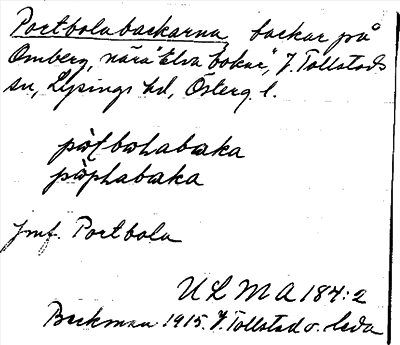 Portbolabackarna backar på
Omberg, nära "Elva bokar", V. Tollstads
sn, Lysings hd, Österg. l.
jmf. Portbola
ULMA 184:2
Beckman 1915. V. Tollstad o. Heda